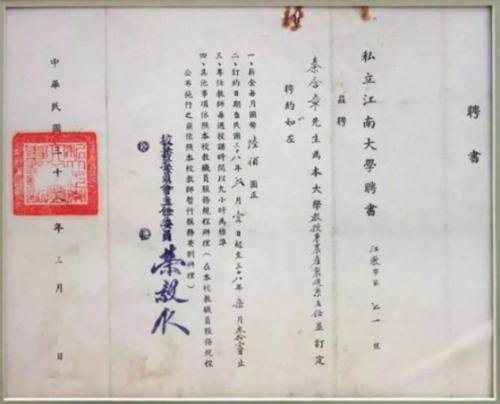 聘書
私立江南大學聘書
江教字第七一號
茲聘
秦含章先生為本大學教授兼農產製造系主任並訂定
聘約如左
一、薪金每月國幣陸佰圓正
二、訂約日期自民國三十八年貳月壹日起至三十八年柒月叁拾壹止
三、專任教師每週授課時間以九小時為標準
四、其他事項依照本校教職員服務規程辦理（在本校教職員服務規程
公布施行之前依照本校教師暫行服務要則辦理）
校務委員會主任委員 榮毅仁
中華民國三十八年三月 日